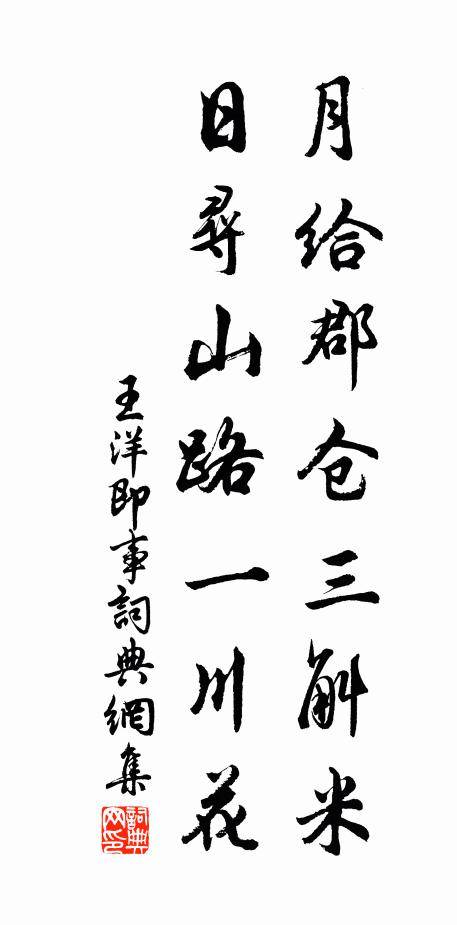 月给郡仓三斛米
日尋山路一川花
王洋即事詞典網集
詞典
网印